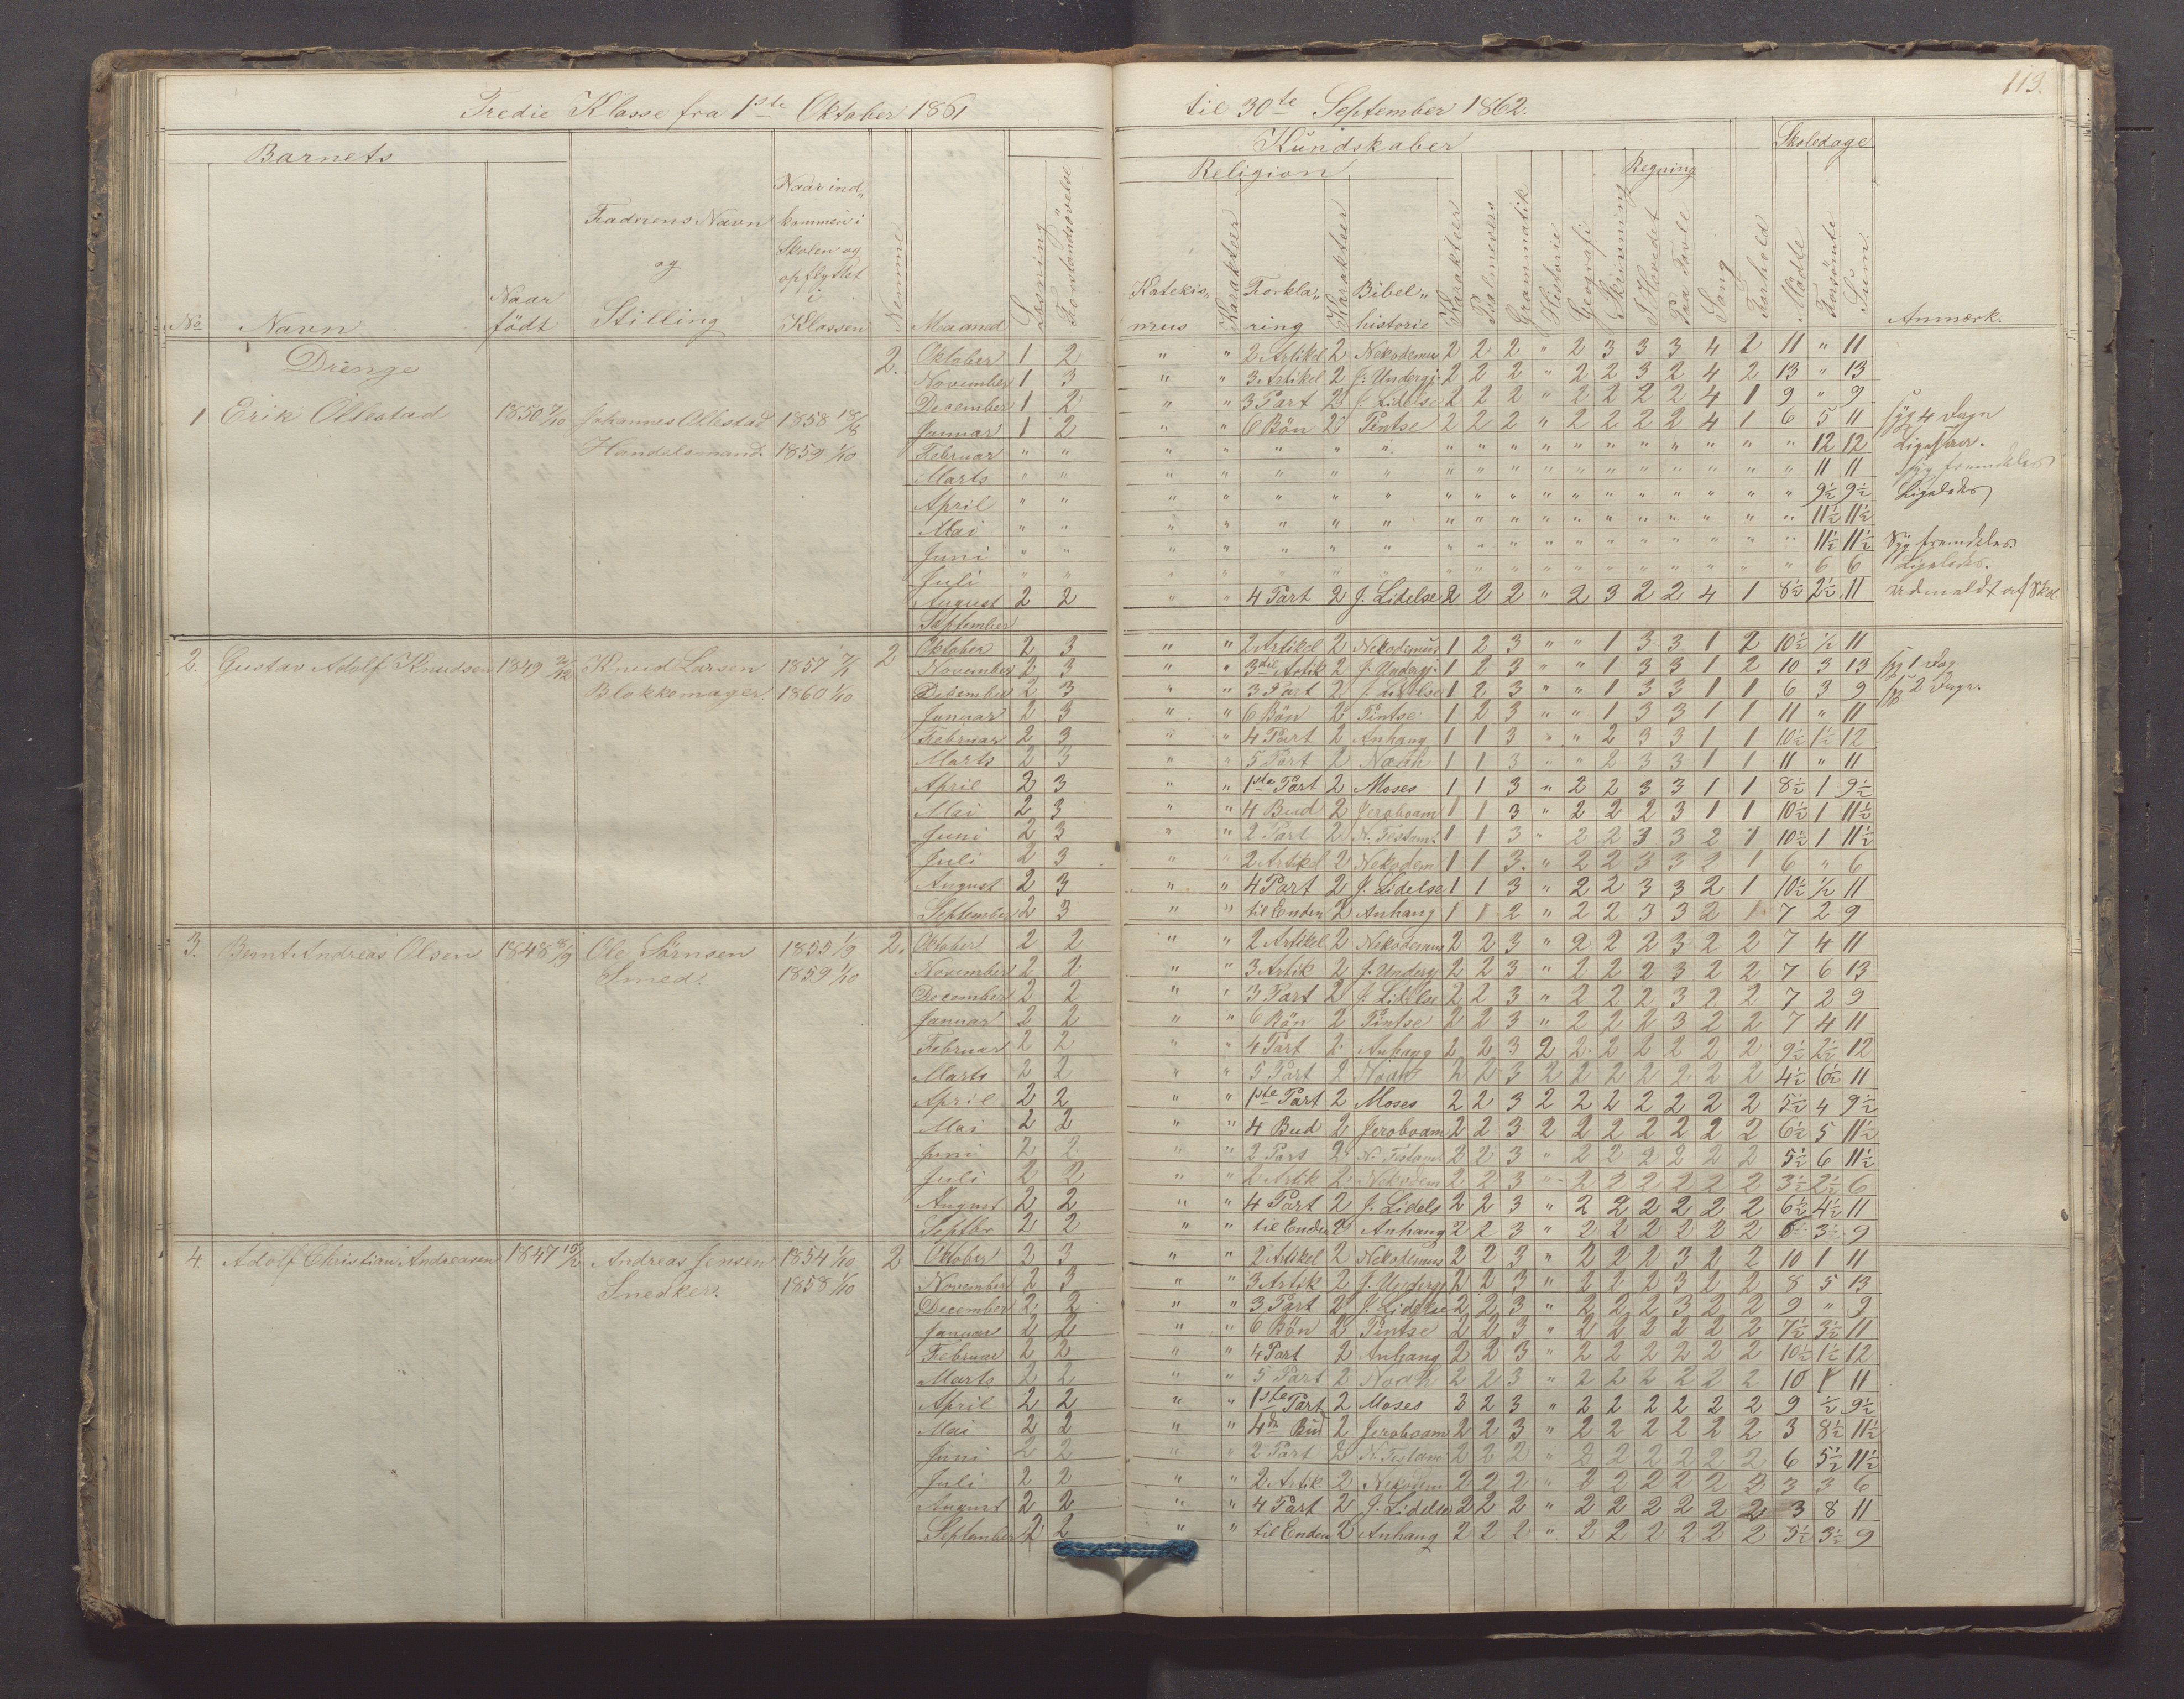 113.
Tredie Klasse fra 1ste Oktober 1861 til 30te September 1862.
Barnets Kundskaber Skoledage
Religion Regning
No Navn Naar födt Faderens Navn og Stilling Naar ind„kommen i Skolen og opflyttet i Klassen Nemme Maaned Læsning Forstandsövelse Katekis„mus Karakteer Forkla„ring Karakteer Bibel„historie Karakteer Psalmevers Grammatik Historie Geografi Skrivning I Hovedet Paa Tavle Sang Forhold Mödte Forsömte Sum. Anmærk.
Drenge
1 Erik Ollestad 1850 7/10 Johannes Ollestad Handelsmand. 1858 18/8 1859 1/10 2.
Oktober 1 2 " " 2 Artikel 2 Nekodemus 2 2 2 " 2 3 3 3 4 2 11 " 11
November 1 3 " " 3 Artikel 2 J. Undergj. 2 2 2 " 2 2 3 2 4 2 13 " 13
December 1 2 " " 3 Part 2 J. Lidelse 2 2 2 " 2 2 2 2 4 1 9 " 9
Januar 1 2 " " 6 Bön 2 Pintse 2 2 2 " 2 2 2 2 4 1 6 5 11 syg 4 Dage
Februar " " " " " " " " " " " " " " " " " " 12 12
Marts " " " " " " " " " " " " " " " " " " 11 11
April " " " " " " " " " " " " " " " " " " 9½ 9½ Ligeledes
Mai " " " " " " " " " " " " " " " " " " 11½ 11½
Juni " " " " " " " " " " " " " " " " " " 11½ 11½ Syg fremdeles.
Juli " " " " " " " " " " " " " " " " " " 6 6 Ligeledes.
August 2 2 " " 4 Part 2 J. Lidelse 2 2 2 " 2 3 2 2 4 1 8½ 2½ 11 udmeldt af Skol.
September
2. Gustav Adolf Knudsen 1849 2/12 Knud Larsen Blokkemager. 1857 1860 1/10 2
Oktober 2 3 " " 2 Artikel 2 Nekodemus 1 2 3 " " 1 3 3 1 2 10½ ½ 11
November 2 3 " " 3die Artik 2 J. Undergj. 1 2 3 " " 1 3 3 1 2 10 3 13 syg 1 Dag.
December 2 3 " " 3 Part 2 J. Lidelse 1 2 3 " " 1 3 3 1 1 6 3 9 syg 2 Dage.
Januar 2 3 " " 6 Bön 2 Pintse 1 2 3 " " 1 3 3 1 1 11 " 11
Februar 2 3 " " 4 Part 2 Anhang 1 1 3 " " 2 3 3 1 1 10½ 1½ 12
Marts 2 3 " " 5 Part 2 Noah 1 1 3 " " 2 3 3 1 1 11 " 11
April 2 3 " " 1ste Part 2 Moses 1 1 3 " 2 2 3 3 1 1 8½ 1 9½
Mai 2 3 " " 4 Bud 2 Jeroboam 1 1 3 " 2 2 2 3 1 1 10½ 1 11½
Juni 2 3 " " 2 Part 2 N. Testam. 1 1 3 " 2 2 3 3 2 1 10½ 1 11½
Juli 2 3 " " 2 Artikel 2 Nekodem 1 1 3 " 2 2 3 3 2 1 6 " 6
August 2 3 " " 4 Part 2 J. Lidelse 1 1 3 " 2 2 3 3 2 1 10½ ½ 11
September 2 3 " " til Enden 2 Anhang 1 1 2 " 2 2 3 3 2 1 7 2 9
3. Bernt Andreas Olsen 1848 8/9 Ole Sörnsen Smed. 1855 1/9 1859 1/10 2.
Oktober 2 2 " " 2 Artikel 2 Nekodemus 2 2 3 " 2 2 2 3 2 2 7 4 11
November 2 2 " " 3 Artik 2 J. Undergj 2 2 3 " 2 2 2 3 2 2 7 6 13
December 2 2 " " 3 Part 2 J. Lidelse 2 2 3 " 2 2 2 3 2 2 7 2 9
Januar 2 2 " " 6 Bön 2 Pintse 2 2 3 " 2 2 2 3 2 2 7 4 11
Februar 2 2 " " 4 Part 2 Anhang 2 2 3 2 2 2 2 2 2 2 9½ 2½ 12
Marts 2 2 " " 5 Part 2 Noah 2 2 3 2 2 2 2 2 2 2 4½ 6½ 11
April 2 2 " " 1ste Part 2 Moses 2 2 3 2 2 2 2 2 2 2 5½ 4 9½
Mai 2 2 " " 4 Bud 2 Jeroboam 2 2 3 2 2 2 2 2 2 2 6½ 5 11½
Juni 2 2 " " 2 Part 2 N. Testam 2 2 3 " 2 2 2 2 2 2 5½ 6 11½
Juli 2 2 " " 2 Artik 2 Nekodem 2 2 3 " 2 2 2 2 2 2 3½ 2½ 6
August 2 2 " " 4 Part 2 J. Lidels 2 2 3 " 2 2 2 2 2 2 6½ 4½ 11
Septbr 2 2 " " til Enden 2 Anhang 2 2 3 " 2 2 2 2 2 2 3½ 9
4. Adolf Christian Andreasen 1847 15/2 Andreas Jensen Snedker. 1854 1/10 1858 1/10 2
Oktober 2 3 " " 2 Artikel 2 Nekodemus 2 2 3 " 2 2 2 3 2 2 10 1 11
November 2 3 " " 3 Artik 2 J. Undergj 2 2 3 " 2 2 2 3 2 2 8 5 13
December 2 2 " " 3 Part 2 J. Lidelse 2 2 3 " 2 2 2 3 2 2 9 " 9
Januar 2 2 " " 6 Bön 2 Pintse 2 2 3 " 2 2 2 2 2 2 7½ 3½ 11
Februar 2 2 " " 4 Part 2 Anhang 2 2 3 " 2 2 2 2 2 2 10½ 1½ 12
Marts 2 2 " " 5 Part 2 Noah 2 2 3 " 2 2 2 2 2 2 10 1 11
April 2 2 " " 1ste Part 2 Moses 3 2 3 " 2 2 2 2 2 2 9 ½ 9½
Mai 2 2 " " 4de Bud 2 Jeroboam 2 2 3 " 2 2 2 2 2 2 3 8½ 11½
Juni 2 2 " " 2 Part 2 N. Testam 2 2 2 " 2 2 2 2 2 2 6 5½ 11½
Juli 2 2 " " 2 Artik. 2 Nekodem 2 2 2 " 2 2 2 2 2 2 3 3 6
August 2 2 " " 4 Part 2 J. Lidelse 2 2 2 " 2 2 2 2 2 2 3 8 11
September 2 2 " " til Enden 2 Anhang 2 2 2 " 2 2 2 2 2 2 5½ 3½ 9